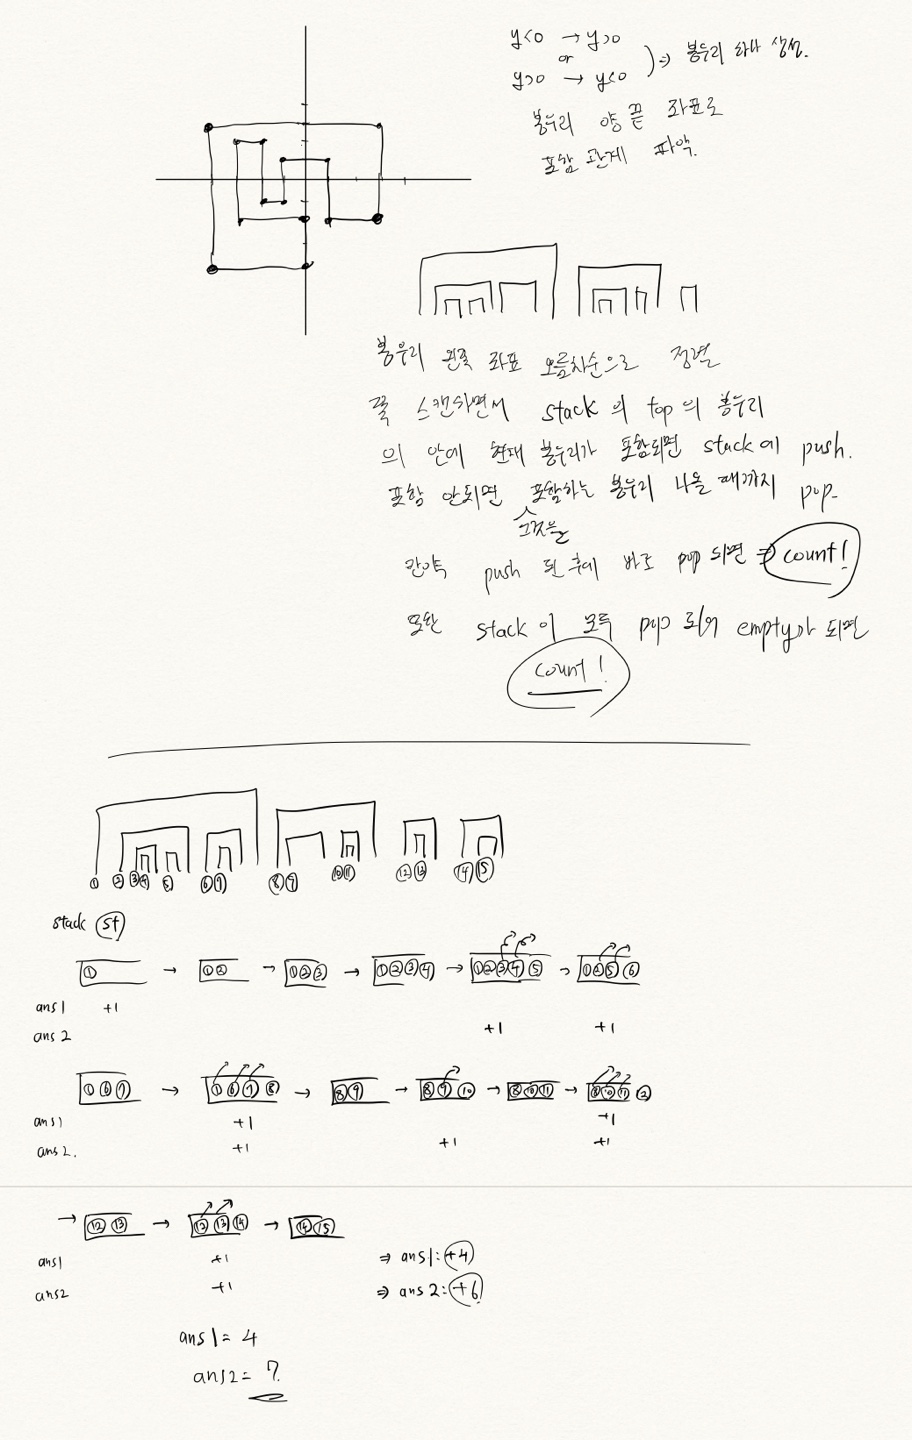 y<0 → y>0
or
y>0 → y<0
) ⇒ 봉우리 하나 생성.
봉우리 양 끝 좌표로
포함 관계 파악.
봉우리 왼쪽 좌표 오름차순으로 정렬
쭉 스캔하면서 stack의 top의 봉우리
의 안에 현재 봉우리가 포함되면 stack에 push.
포함 안되면 포함하는 봉우리 나올 때까지 pop.
그것을
만약 push 된 후에 바로 pop 되면 ⇒ count!
또한 stack이 모두 pop 되어 empty가 되면
count!
① ② ③ ④ ⑤ ⑥ ⑦ ⑧ ⑨ ⑩ ⑪ ⑫ ⑬ ⑭ ⑮
stack st
① → ① ② → ① ② ③ → ① ② ③ ④ → ① ② ③ ④ ⑤ → ① ② ⑤ ⑥
ans1 +1
ans2 +1 +1
① ⑥ ⑦ → ① ⑥ ⑦ ⑧ → ⑧ ⑨ → ⑧ ⑨ ⑩ → ⑧ ⑩ ⑪ → ⑧ ⑩ ⑪ ⑫
ans1 +1 +1
ans2. +1 +1 +1
→ ⑫ ⑬ → ⑫ ⑬ ⑭ → ⑭ ⑮
ans1 +1 ⇒ ans1: +4
ans2 +1 ⇒ ans2: +6
ans1 = 4
ans2 = 7.